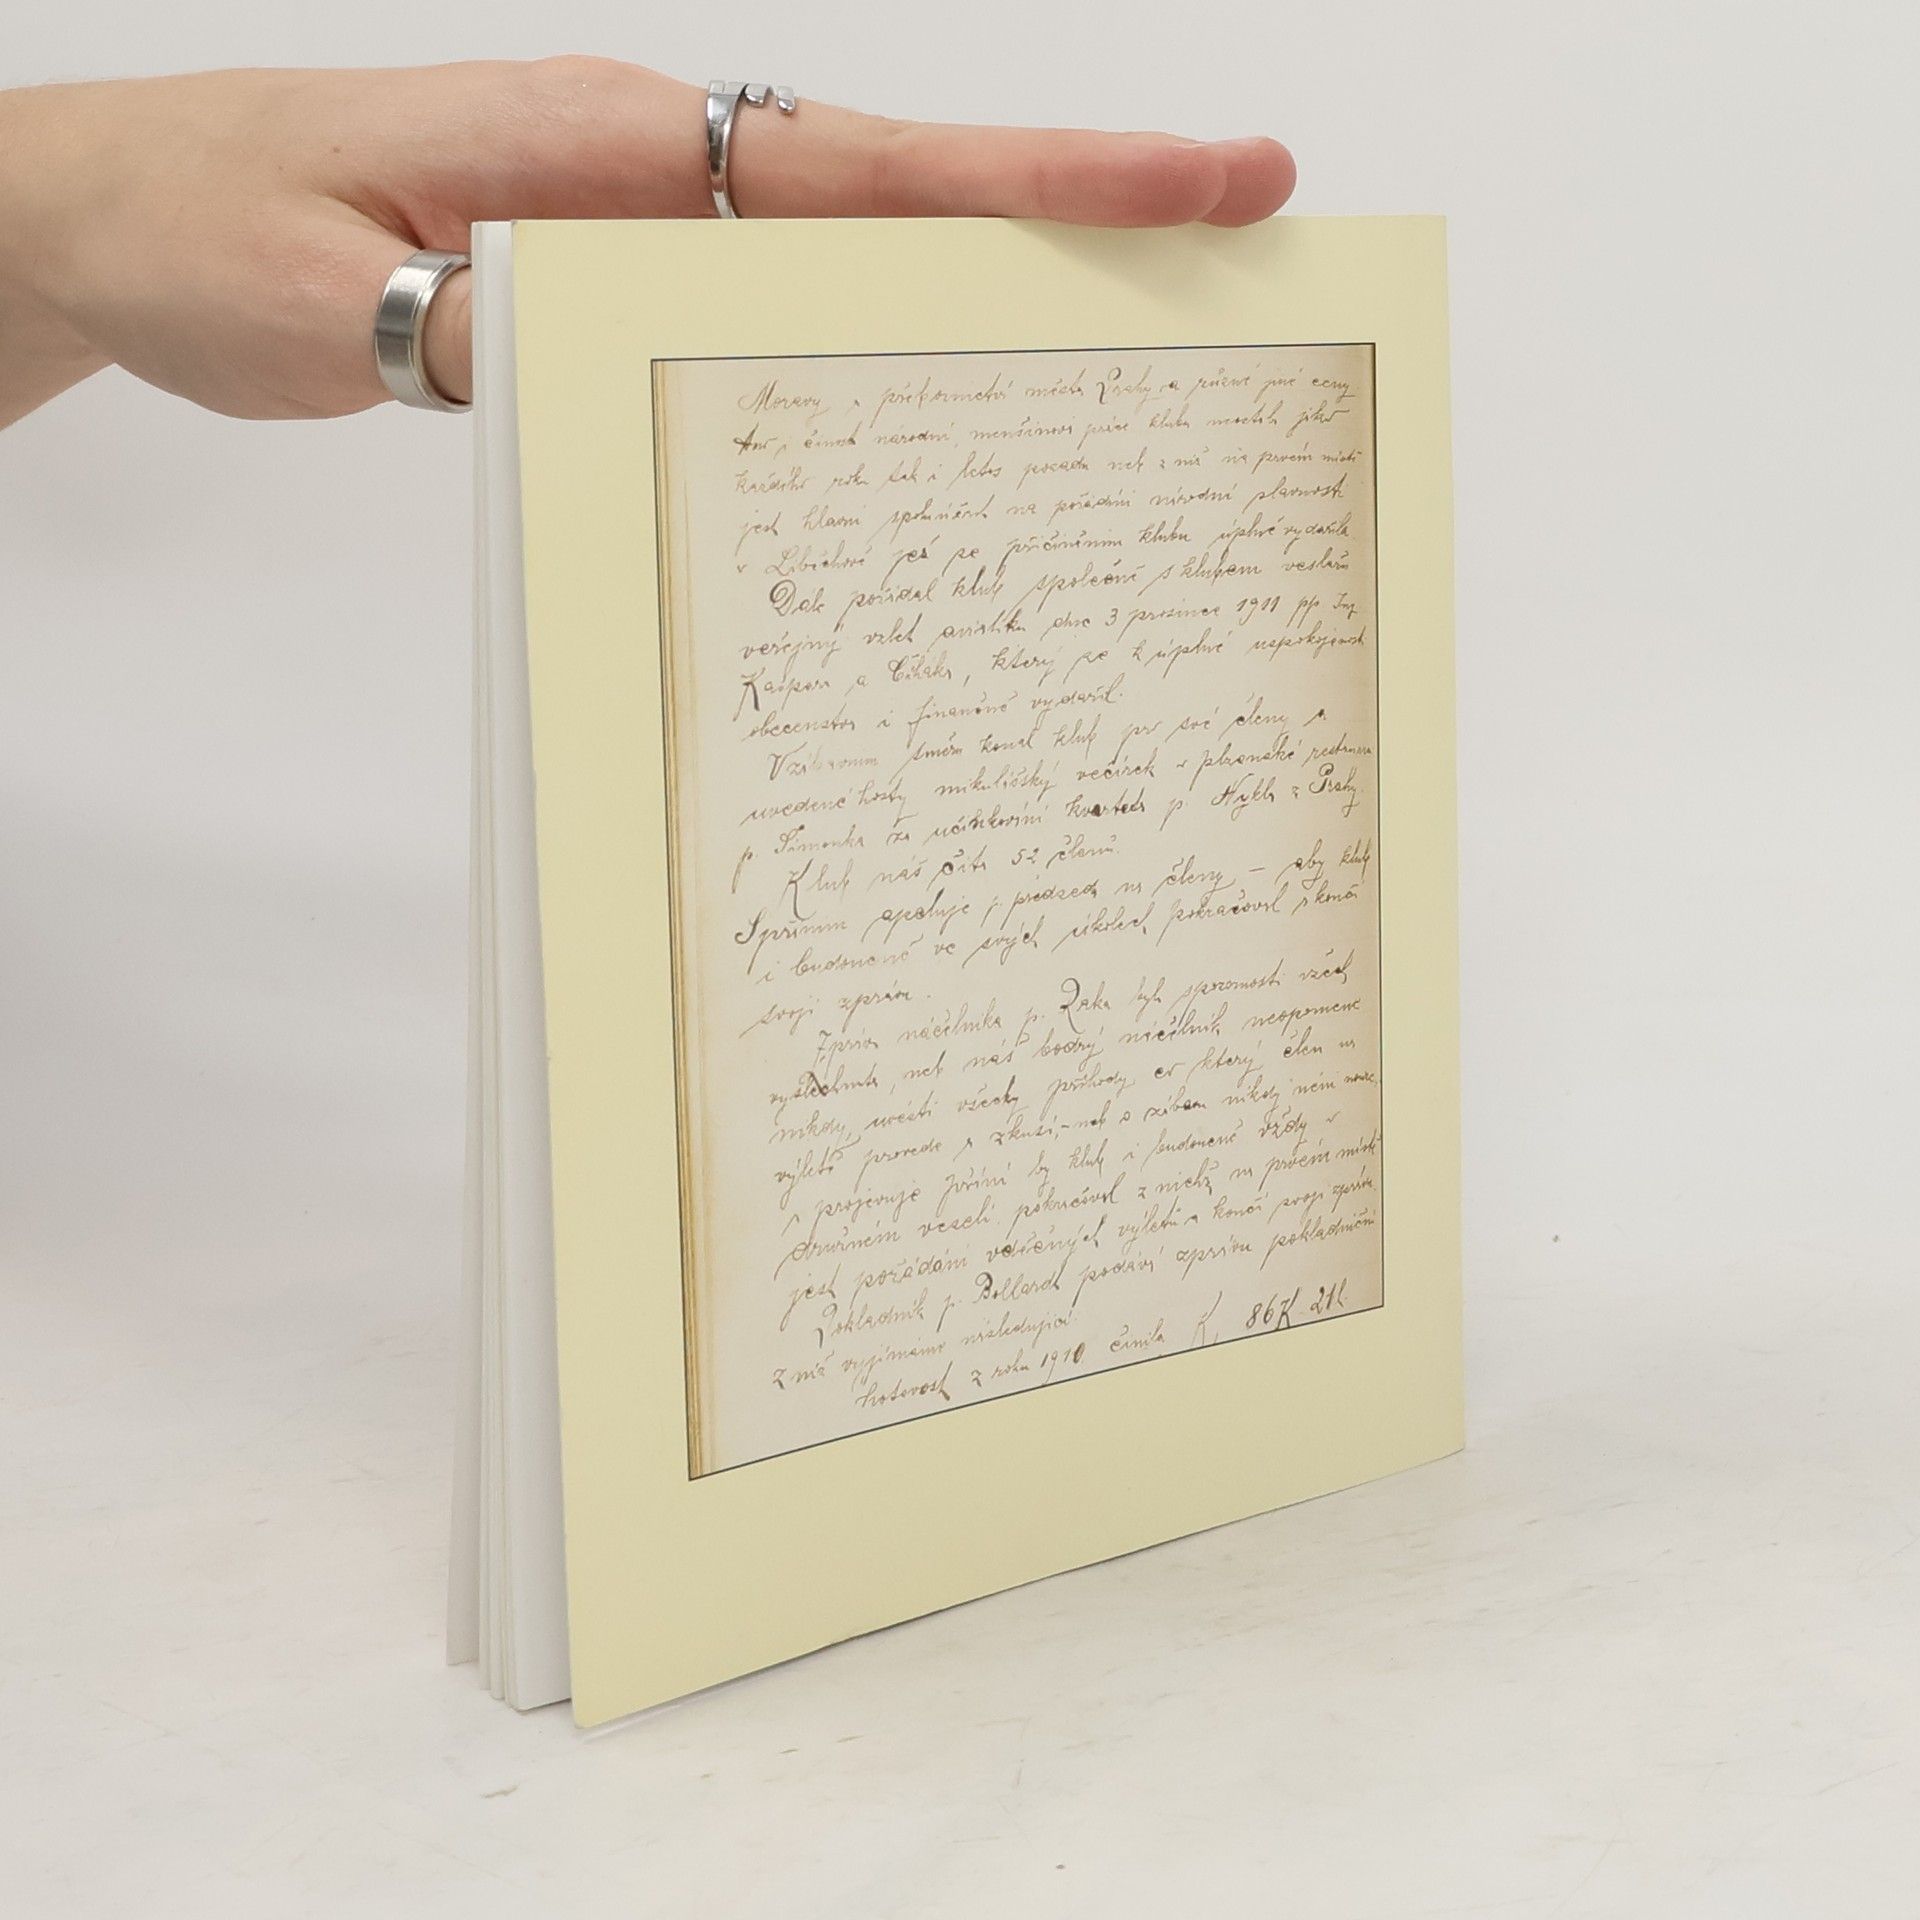 Moravy a přebornictví města Prahy a různé jiné ceny
též i činnost národní, menšinovi práce klubu neustala jako
každého roku tak i letos pozadu neb z níž na prvém místě
jest hlavní spoluúčast na pořádání národní slavnosti
v Liběchově jež se přičiněním klubu úplně vydařila.
Dále pořádal klub společně s klubem veslařů
veřejný vzlet aviatiků dne 3 prosince 1911 pp. Ing.
Kašpara a Čiháka, který se k úplné uspokojenosti
obecenstva i finančně vydařil.
směru konal klub pro své členy a
uvedené hosty mikulášský večírek v plzeňské restauraci
p. Šimonka za účinkování kvarteta p. Hykla z Prahy.
Klub náš čítá 52 členů.
apeluje p. předseda na členy – aby klub
i budoucně ve svých úkolech pokračoval a končí
svoji zprávu.
Zpráva náčelníka p. Raka byla s pozorností všech
vyslechnuta, neb náš bodrý náčelník neopomene
nikdy uvésti všecky příhody co který člen na
výletě provede a zkusí, – neb o zábavu nikdy není nouze,
a projevuje přání by klub i budoucně vždy v
družném veselí pokračoval z nichž na prvém místě
jest pořádání vděčných výletů a končí svoji zprávu.
Pokladník p. Bollard podává zprávu pokladniční
z níž vyjímáme následující:
hotovost z roku 1910 činila K, 86K 21h.